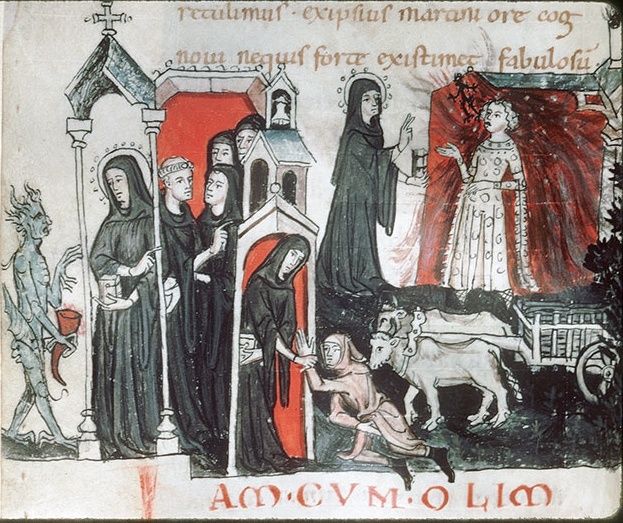 retulimus · ex ipsius martini ore cog
novi nequis forte existimet fabulosū·
AM·CVM·OLIM